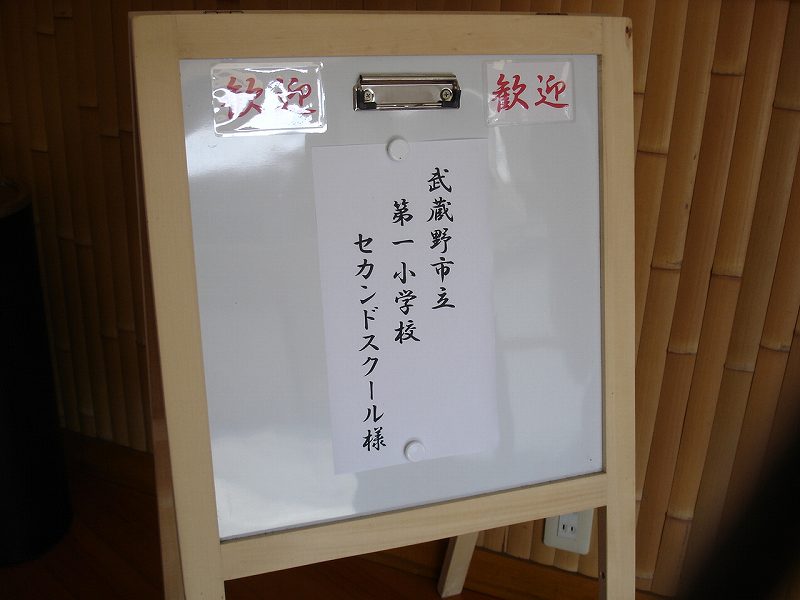 歓迎
歓迎
武蔵野市立
第一小学校
セカンドスクール様